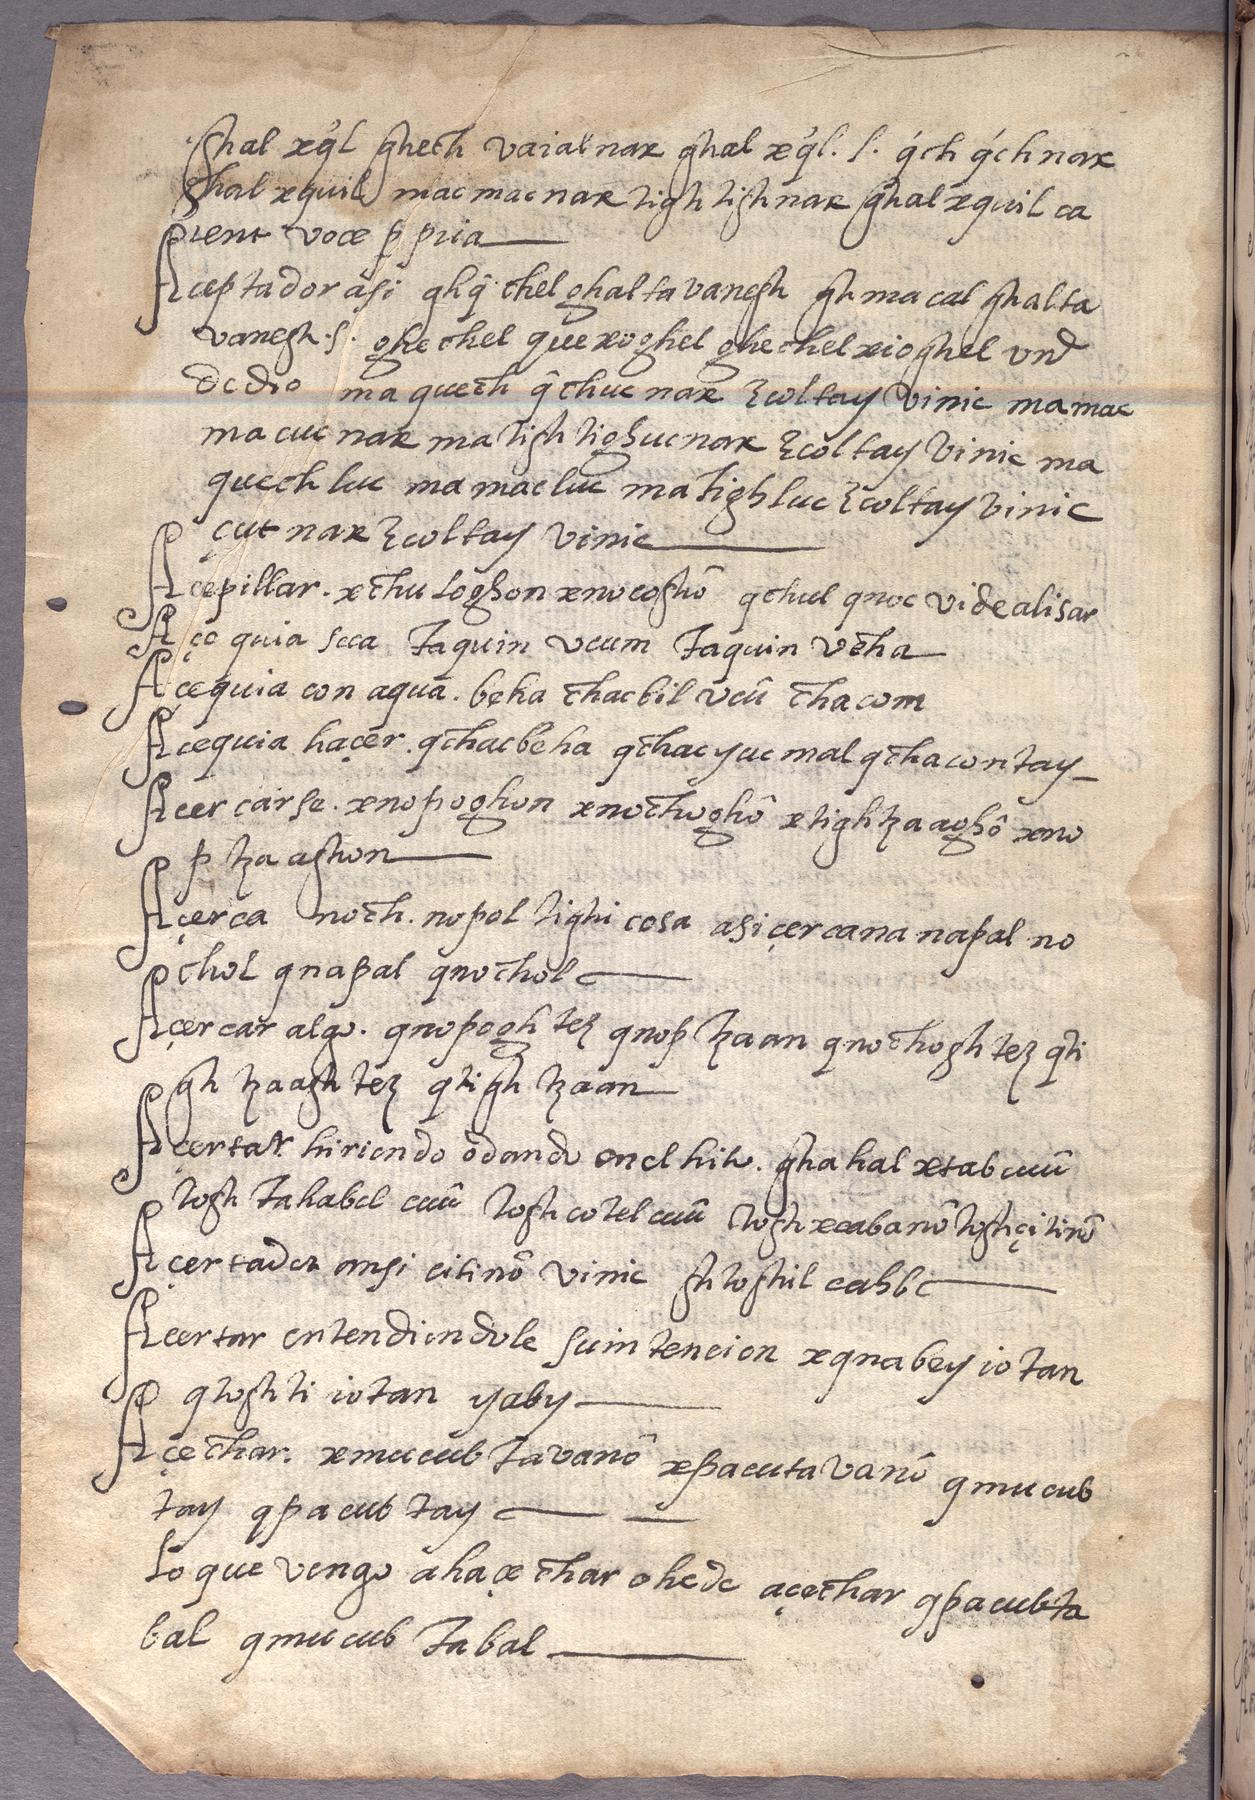 ghal xq̉l ghech vaial nax ghal xq̉l. s. q́ch q́ch nax
ghal xquil mac macnax tigh tighnax ghal xquil ca
rent voce ꝓpria
Aceptador asi qhq̂ chel ghalta vanegh gh ma cal ghalta
vanegh. s. ghechel quexoghel ghechel xioghel vnd
de dio ma quech q̂chuc nax ꜫcoltay vinic mamac
macuc nax ma tigh tighucnax ꜫcoltay vinic ma
quech luc ma macluc ma tighluc ꜫcoltay vinic
çut nax ꜫcoltay vinic
Acepillar. xchu loghon xnocoghô qchul qnoc vide alisar
Açequia seca taquin vcum taquin vcha
Açequia con agua. beha chacbil vcû chacom
Acequia haçer. qchacbeha qchacyuc mal qchacontay
Acercarse. xnopoghon xnochoghô xtightzaaghô xno
p tzaaghon
Açerca noch. nopol tighi cosa asi çercana napal no
chol qnapal qnochol
Açercar algo. qnopogh tez qnop tzaan qnochogh tez qti
gh tzaagh tez qtigh tzaan
Açertar hiriendo o dando en el hito. ghahal xtabcuû
togh tahabel cuû togh cotel cuû togh xcabanô togh çitinô
Açertador ansi citinô vinic ghtoghil cahbe
Acertar entendiendole su intencion xqnabey iotan
qtoghti iotan yaby
Açechar. xmucub tavanô xpacutavanô qmucub
tay qpacub tay
Lo que vengo a haçechar o he de açechar qpacubta
bal qmucub tabal